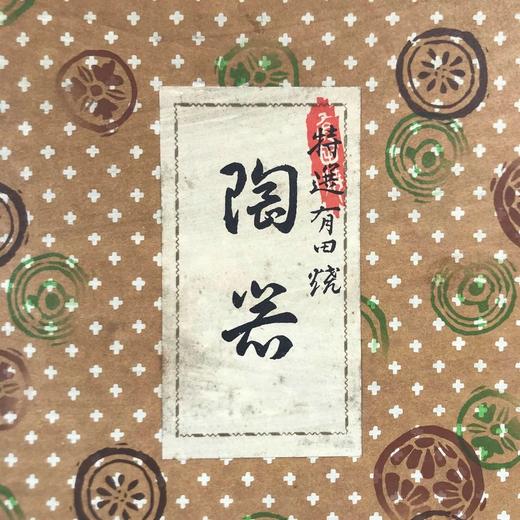 特選有田焼
陶器